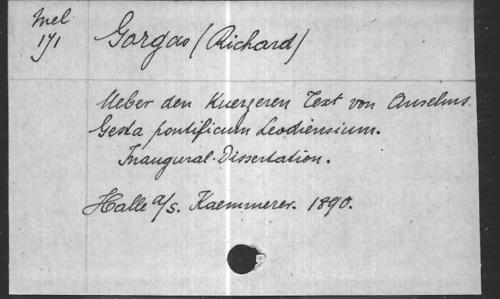 Mel
171
Gorgas (Richard)
Ueber den Kuerzeren Text von Anselms
Gesta pontificum Leodiensium.
Inaugural-Dissertation.
Halle a/s. Kaemmerer. 1890.